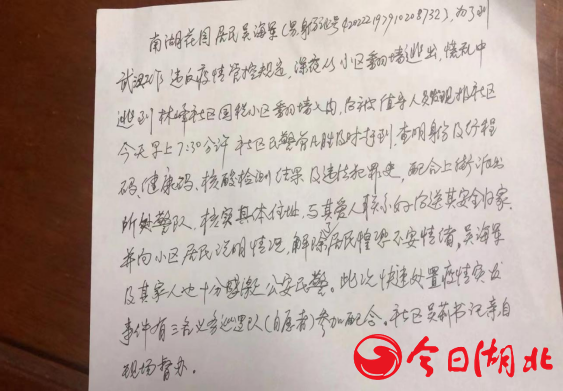 南湖花园居民吴海军(身份证号420222197910208732),为了到
武汉工作违反疫情管控规定,深夜从小区翻墙逃出,慌乱中
逃到林峰社区国税小区翻墙入内,后被值守人员发现报社区
今天早上7:30分许社区民警前几胜及时赶到,查明身份及行程
码、健康码、核酸检测结果及违法犯罪史,配合上街派出
所处警队,核实具体住址,与其爱人联系好后送其安全归家.
并向小区居民说明情况,解除居民惶恐不安情绪,吴海军
及其家人也十分感激公安民警。此次快速处置疫情突发
事件有三名义务巡逻队(自愿者)参加配合。社区吴莉书记亲自
现场督办.
今日湖北